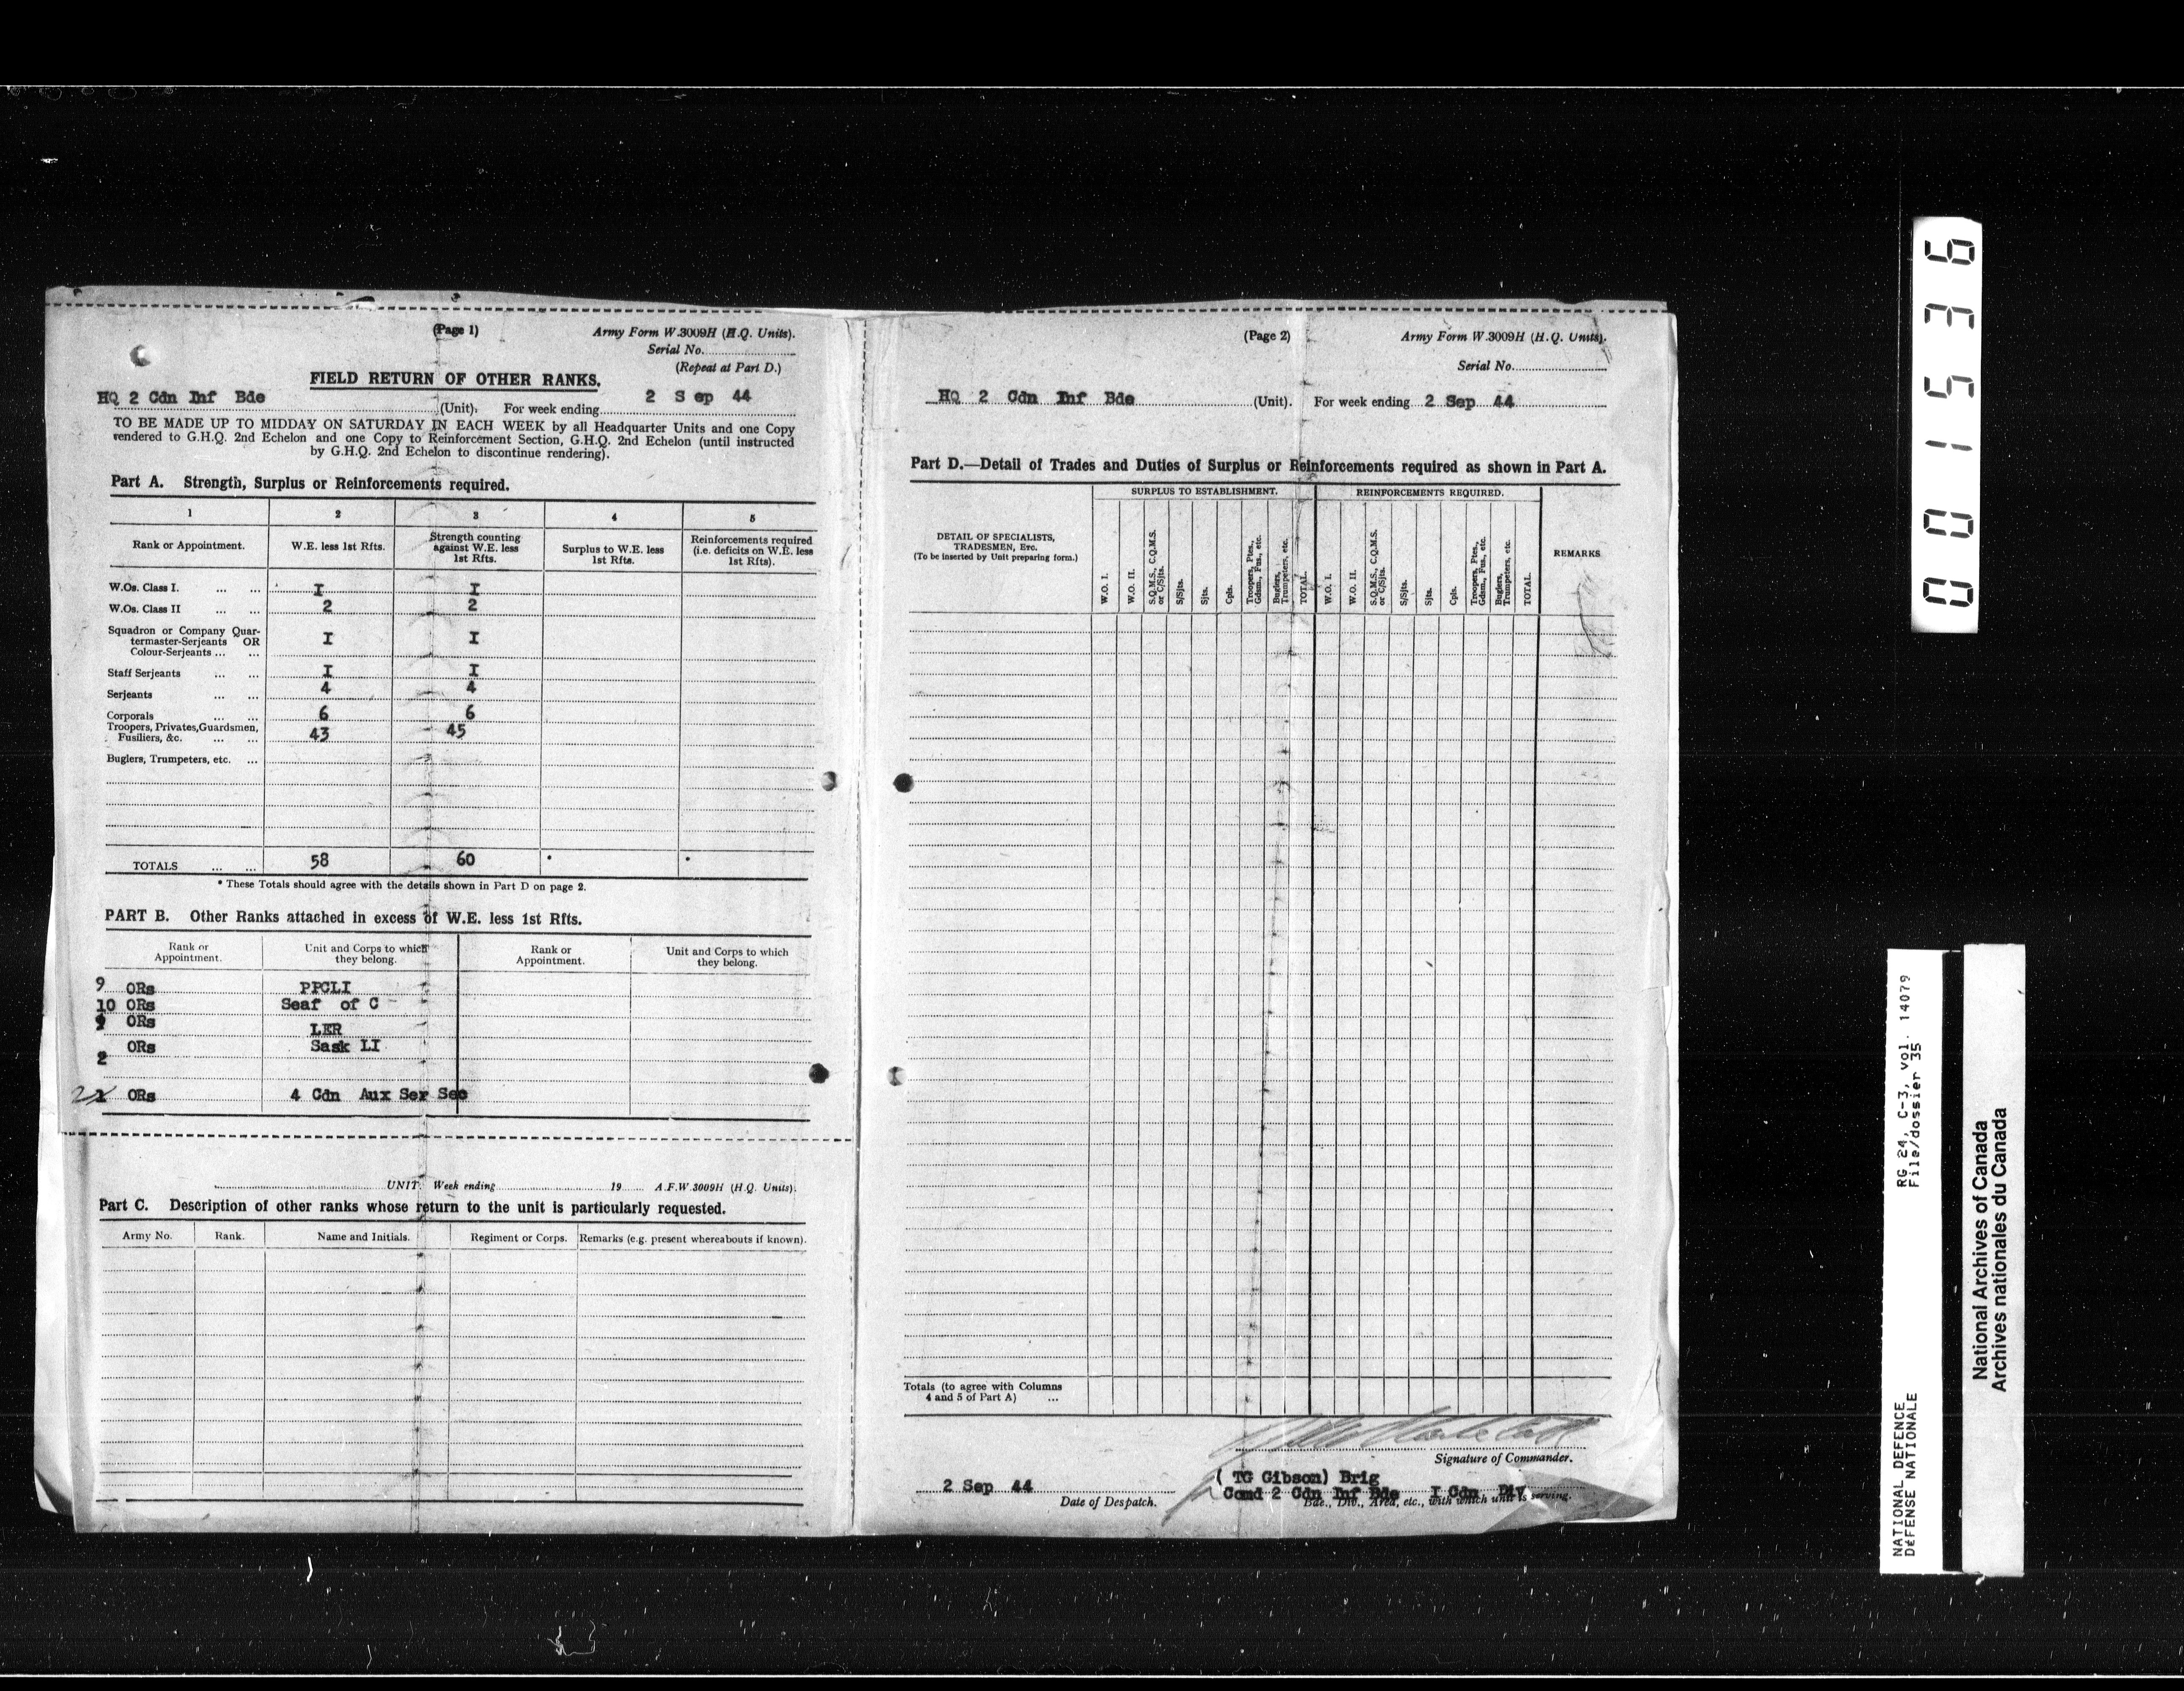 (Page 1)
Army Form W.3009H (H.Q. Units).
Serial No.
(Repeat at Part D.)
FIELD RETURN OF OTHER RANKS.
HQ 2 Cdn Inf Bde (Unit). For week ending 2 Sep 44
TO BE MADE UP TO MIDDAY ON SATURDAY IN EACH WEEK by all Headquarter Units and one Copy
rendered to G.H.Q. 2nd Echelon and one Copy to Reinforcement Section, G.H.Q. 2nd Echelon (until instructed
by G.H.Q. 2nd Echelon to discontinue rendering).
Part A. Strength, Surplus or Reinforcements required.
1 2 3 4 5
Rank or Appointment. W.E. less 1st Rfts. Strength counting against W.E. less 1st Rfts. Surplus to W.E. less 1st Rfts. Reinforcements required (i.e. deficits on W.E. less 1st Rfts).
W.Os. Class I. ... ... I I
W.Os. Class II ... ... 2 2
Squadron or Company Quar-
termaster-Serjeants OR I I
Colour-Serjeants ... ...
Staff Serjeants ... ... I I
Serjeants ... ... 4 4
Corporals ... ... 6 6
Troopers, Privates, Guardsmen,
Fusiliers, &c. ... ... 43 45
Buglers, Trumpeters, etc. ...
TOTALS ... ... 58 60 * *
* These Totals should agree with the details shown in Part D on page 2.
PART B. Other Ranks attached in excess of W.E. less 1st Rfts.
Rank or Appointment. Unit and Corps to which they belong. Rank or Appointment. Unit and Corps to which they belong.
9 ORs PPCLI
10 ORs Seaf of C
ORs LER
2 ORs Sask LI
2 ORs 4 Cdn Aux Ser Sec
UNIT. Week ending 19 A.F.W.3009H (H.Q. Units).
Part C. Description of other ranks whose return to the unit is particularly requested.
Army No. Rank. Name and Initials. Regiment or Corps. Remarks (e.g. present whereabouts if known).
(Page 2)
Army Form W.3009H (H.Q. Units).
Serial No.
HQ 2 Cdn Inf Bde (Unit). For week ending 2 Sep 44
Part D.—Detail of Trades and Duties of Surplus or Reinforcements required as shown in Part A.
DETAIL OF SPECIALISTS,
TRADESMEN, Etc.
(To be inserted by Unit preparing form.)
SURPLUS TO ESTABLISHMENT.
W.O. I.
W.O. II.
S.Q.M.S., C.Q.M.S. or C/Sjts.
S/Sjts.
Sjts.
Cpls.
Troopers, Ptes., Gdsm., Fus., etc.
Buglers, Trumpeters, etc.
TOTAL.
REINFORCEMENTS REQUIRED.
W.O. I.
W.O. II.
S.Q.M.S., C.Q.M.S. or C/Sjts.
S/Sjts.
Sjts.
Cpls.
Troopers, Ptes., Gdsm., Fus., etc.
Buglers, Trumpeters, etc.
TOTAL.
REMARKS
Totals (to agree with Columns
4 and 5 of Part A) ...
Signature of Commander.
(TG Gibson) Brig
Comd 2 Cdn Inf Bde I Cdn Div
Bde., Div., Area, etc., with which unit is serving.
2 Sep 44
Date of Despatch.
001536
RG 24, C-3, vol. 14079
File/dossier 35
NATIONAL DEFENCE
DEFENSE NATIONALE
National Archives of Canada
Archives nationales du Canada